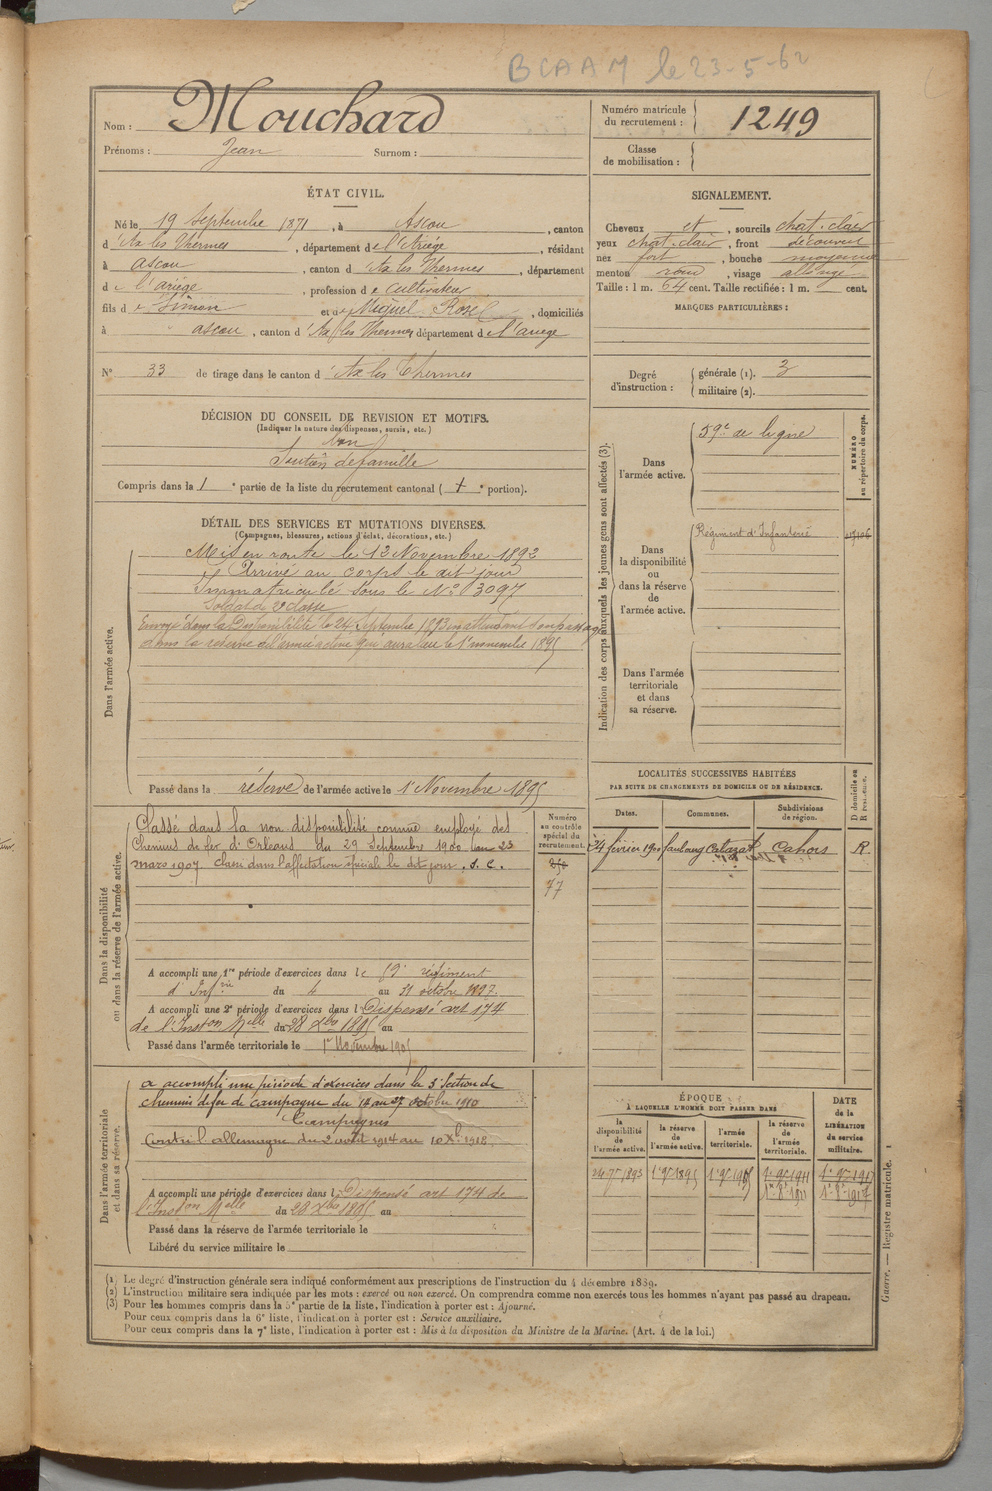 BCAAM le 23-5-62
Nom : Mouchard
Prénoms : Jean Surnom :
Numéro matricule du recrutement : 1249
Classe de mobilisation :
ÉTAT CIVIL.
Né le 19 Septembre 1871, à Ascou, canton
d'Ax les Thermes, département de l'Ariège, résidant
à Ascou, canton d'Ax les Thermes, département
de l'ariège, profession de cultivateur
fils de Simon et de Miquel Rose, domiciliés
à ascou, canton d'Ax les Thermes département de l'ariege
N° 33 de tirage dans le canton d'Ax les Thermes
SIGNALEMENT.
Cheveux et, sourcils chat. clair
yeux chat. clair, front découvert
nez fort, bouche moyenne
menton rond, visage allongé
Taille : 1 m. 64 cent. Taille rectifiée : 1 m. cent.
MARQUES PARTICULIÈRES :
Degré d'instruction :
générale (1). 3
militaire (2).
DÉCISION DU CONSEIL DE REVISION ET MOTIFS.
(Indiquer la nature des dispenses, sursis, etc.)
bon
Soutien de famille
Compris dans la 1e partie de la liste du recrutement cantonal ( e portion).
DÉTAIL DES SERVICES ET MUTATIONS DIVERSES.
(Campagnes, blessures, actions d'éclat, décorations, etc.)
Dans l'armée active.
Mis en route le 12 Novembre 1892
Arrivé au corps le dit jour
Immatriculé sous le N° 3097
Soldat de 2e classe
Envoyé dans la Disponibilité le 24 Septembre 1893 en attendant son passage
dans la réserve de l'armée active qui aura lieu le 1er novembre 1895
Passé dans la réserve de l'armée active le 1er Novembre 1895
Indication des corps auxquels les jeunes gens sont affectés (3).
Dans l'armée active.
59e de ligne
NUMÉRO au répertoire du corps.
Dans la disponibilité ou dans la réserve de l'armée active.
Régiment d'Infanterie
Dans l'armée territoriale et dans sa réserve.
Dans la disponibilité ou dans la réserve de l'armée active.
Classé dans la non disponibilité comme employé des
Chemins de fer d'Orléans du 29 Septembre 1900 au 23
mars 1907. Classé dans l'affectation spéciale le dit jour. S. C.
Numéro au contrôle spécial du recrutement.
77
A accompli une 1re période d'exercices dans le 59e régiment
d'Infrie du 4 au 31 octobre 1897.
A accompli une 2e période d'exercices dans l Dispensé art 174
de l'Inston Melle du 28 Xbre 1895 au
Passé dans l'armée territoriale le 1er Novembre 1905
LOCALITÉS SUCCESSIVES HABITÉES
PAR SUITE DE CHANGEMENTS DE DOMICILE OU DE RÉSIDENCE.
Dates. Communes. Subdivisions de région. D domicile ou R résidence.
24 février 1900 faubourg Cabazat Cahors R.
Dans l'armée territoriale et dans sa réserve.
a accompli une période d'exercices dans la 3e Section de
chemin de fer de campagne du 14 au 27 octobre 1910
Campagnes
Contre l'allemagne du 2 août 1914 au 10 Xbre 1918.
A accompli une période d'exercices dans l Dispensé art 174 de
l'Inston Melle du 28 Xbre 1895 au
Passé dans la réserve de l'armée territoriale le
Libéré du service militaire le
ÉPOQUE
À LAQUELLE L'HOMME DOIT PASSER DANS
la disponibilité de l'armée active. la réserve de l'armée active. l'armée territoriale. la réserve de l'armée territoriale.
DATE de la LIBÉRATION du service militaire.
24 7bre 1893 1er 9bre 1895 1er 9bre 1905 1er 9bre 1911 1er 9bre 1917
1er 8bre 1911 1er 8bre 1917
(1) Le degré d'instruction générale sera indiqué conformément aux prescriptions de l'instruction du 4 décembre 1889.
(2) L'instruction militaire sera indiquée par les mots : exercé ou non exercé. On comprendra comme non exercés tous les hommes n'ayant pas passé au drapeau.
(3) Pour les hommes compris dans la 5e partie de la liste, l'indication à porter est : Ajourné.
Pour ceux compris dans la 6e liste, l'indication à porter est : Service auxiliaire.
Pour ceux compris dans la 7e liste, l'indication à porter est : Mis à la disposition du Ministre de la Marine. (Art. 4 de la loi.)
Guerre. — Registre matricule. 1